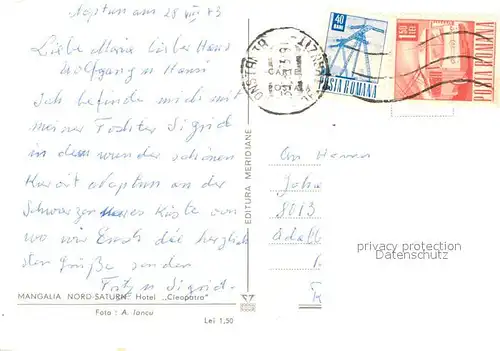 Neptun am 28 VIII 73
Liebe Maria liebe Hans
Wolfgang u Hansi
Ich befinde mich mit
meiner Tochter Sigrid
in dem wunder schönen
Kurort Neptun an der
Schwarzen Meeres Küste von
wo wir Euch die herzlich
sten Grüße senden
Sigrid
MANGALIA NORD-SATURN Hotel „Cleopatra"
Foto : A. Iancu
Lei 1,50
EDITURA MERIDIANE
CONSTANTA
40 BANI
POSTA ROMANA
POSTA ROMANA
An Herrn
Joh
8013
privacy protection
Datenschutz